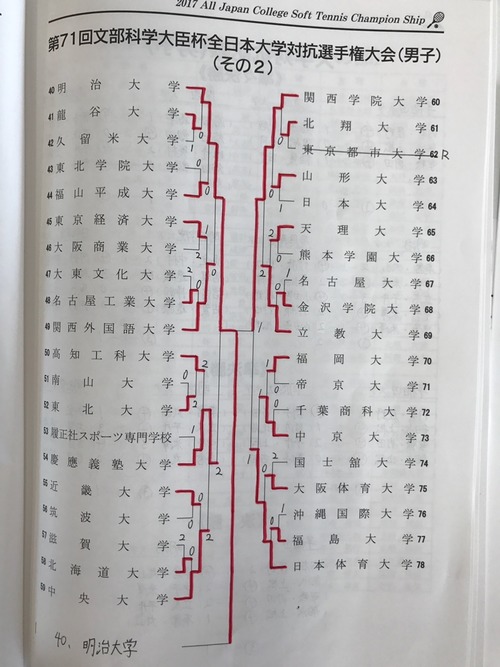 2017 All Japan College Soft Tennis Champion Ship
第71回文部科学大臣杯全日本大学対抗選手権大会(男子)
(その2)
40 明治大学
41 龍谷大学
42 久留米大学
43 東北学院大学
44 福山平成大学
45 東京経済大学
46 大阪商業大学
47 大東文化大学
48 名古屋工業大学
49 関西外国語大学
50 高知工科大学
51 南山大学
52 東北大学
53 履正社スポーツ専門学校
54 慶應義塾大学
55 近畿大学
56 筑波大学
57 滋賀大学
58 北海道大学
59 中央大学
関西学院大学 60
北翔大学 61
東京都市大学 62 R
山形大学 63
日本大学 64
天理大学 65
熊本学園大学 66
名古屋大学 67
金沢学院大学 68
立教大学 69
福岡大学 70
帝京大学 71
千葉商科大学 72
中京大学 73
国士舘大学 74
大阪体育大学 75
沖縄国際大学 76
福島大学 77
日本体育大学 78
40. 明治大学